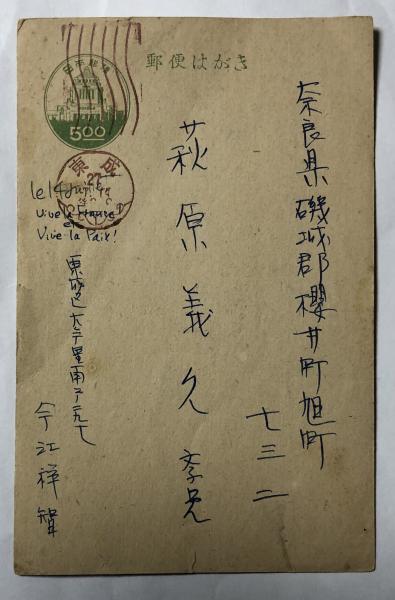 郵便はがき
日本郵便
5.00
東成
27
奈良県磯城郡櫻井町旭町
七三二
萩原義久 学兄
le 14 juillet
Vive la France
et
Vive la Paix!
今江祥智